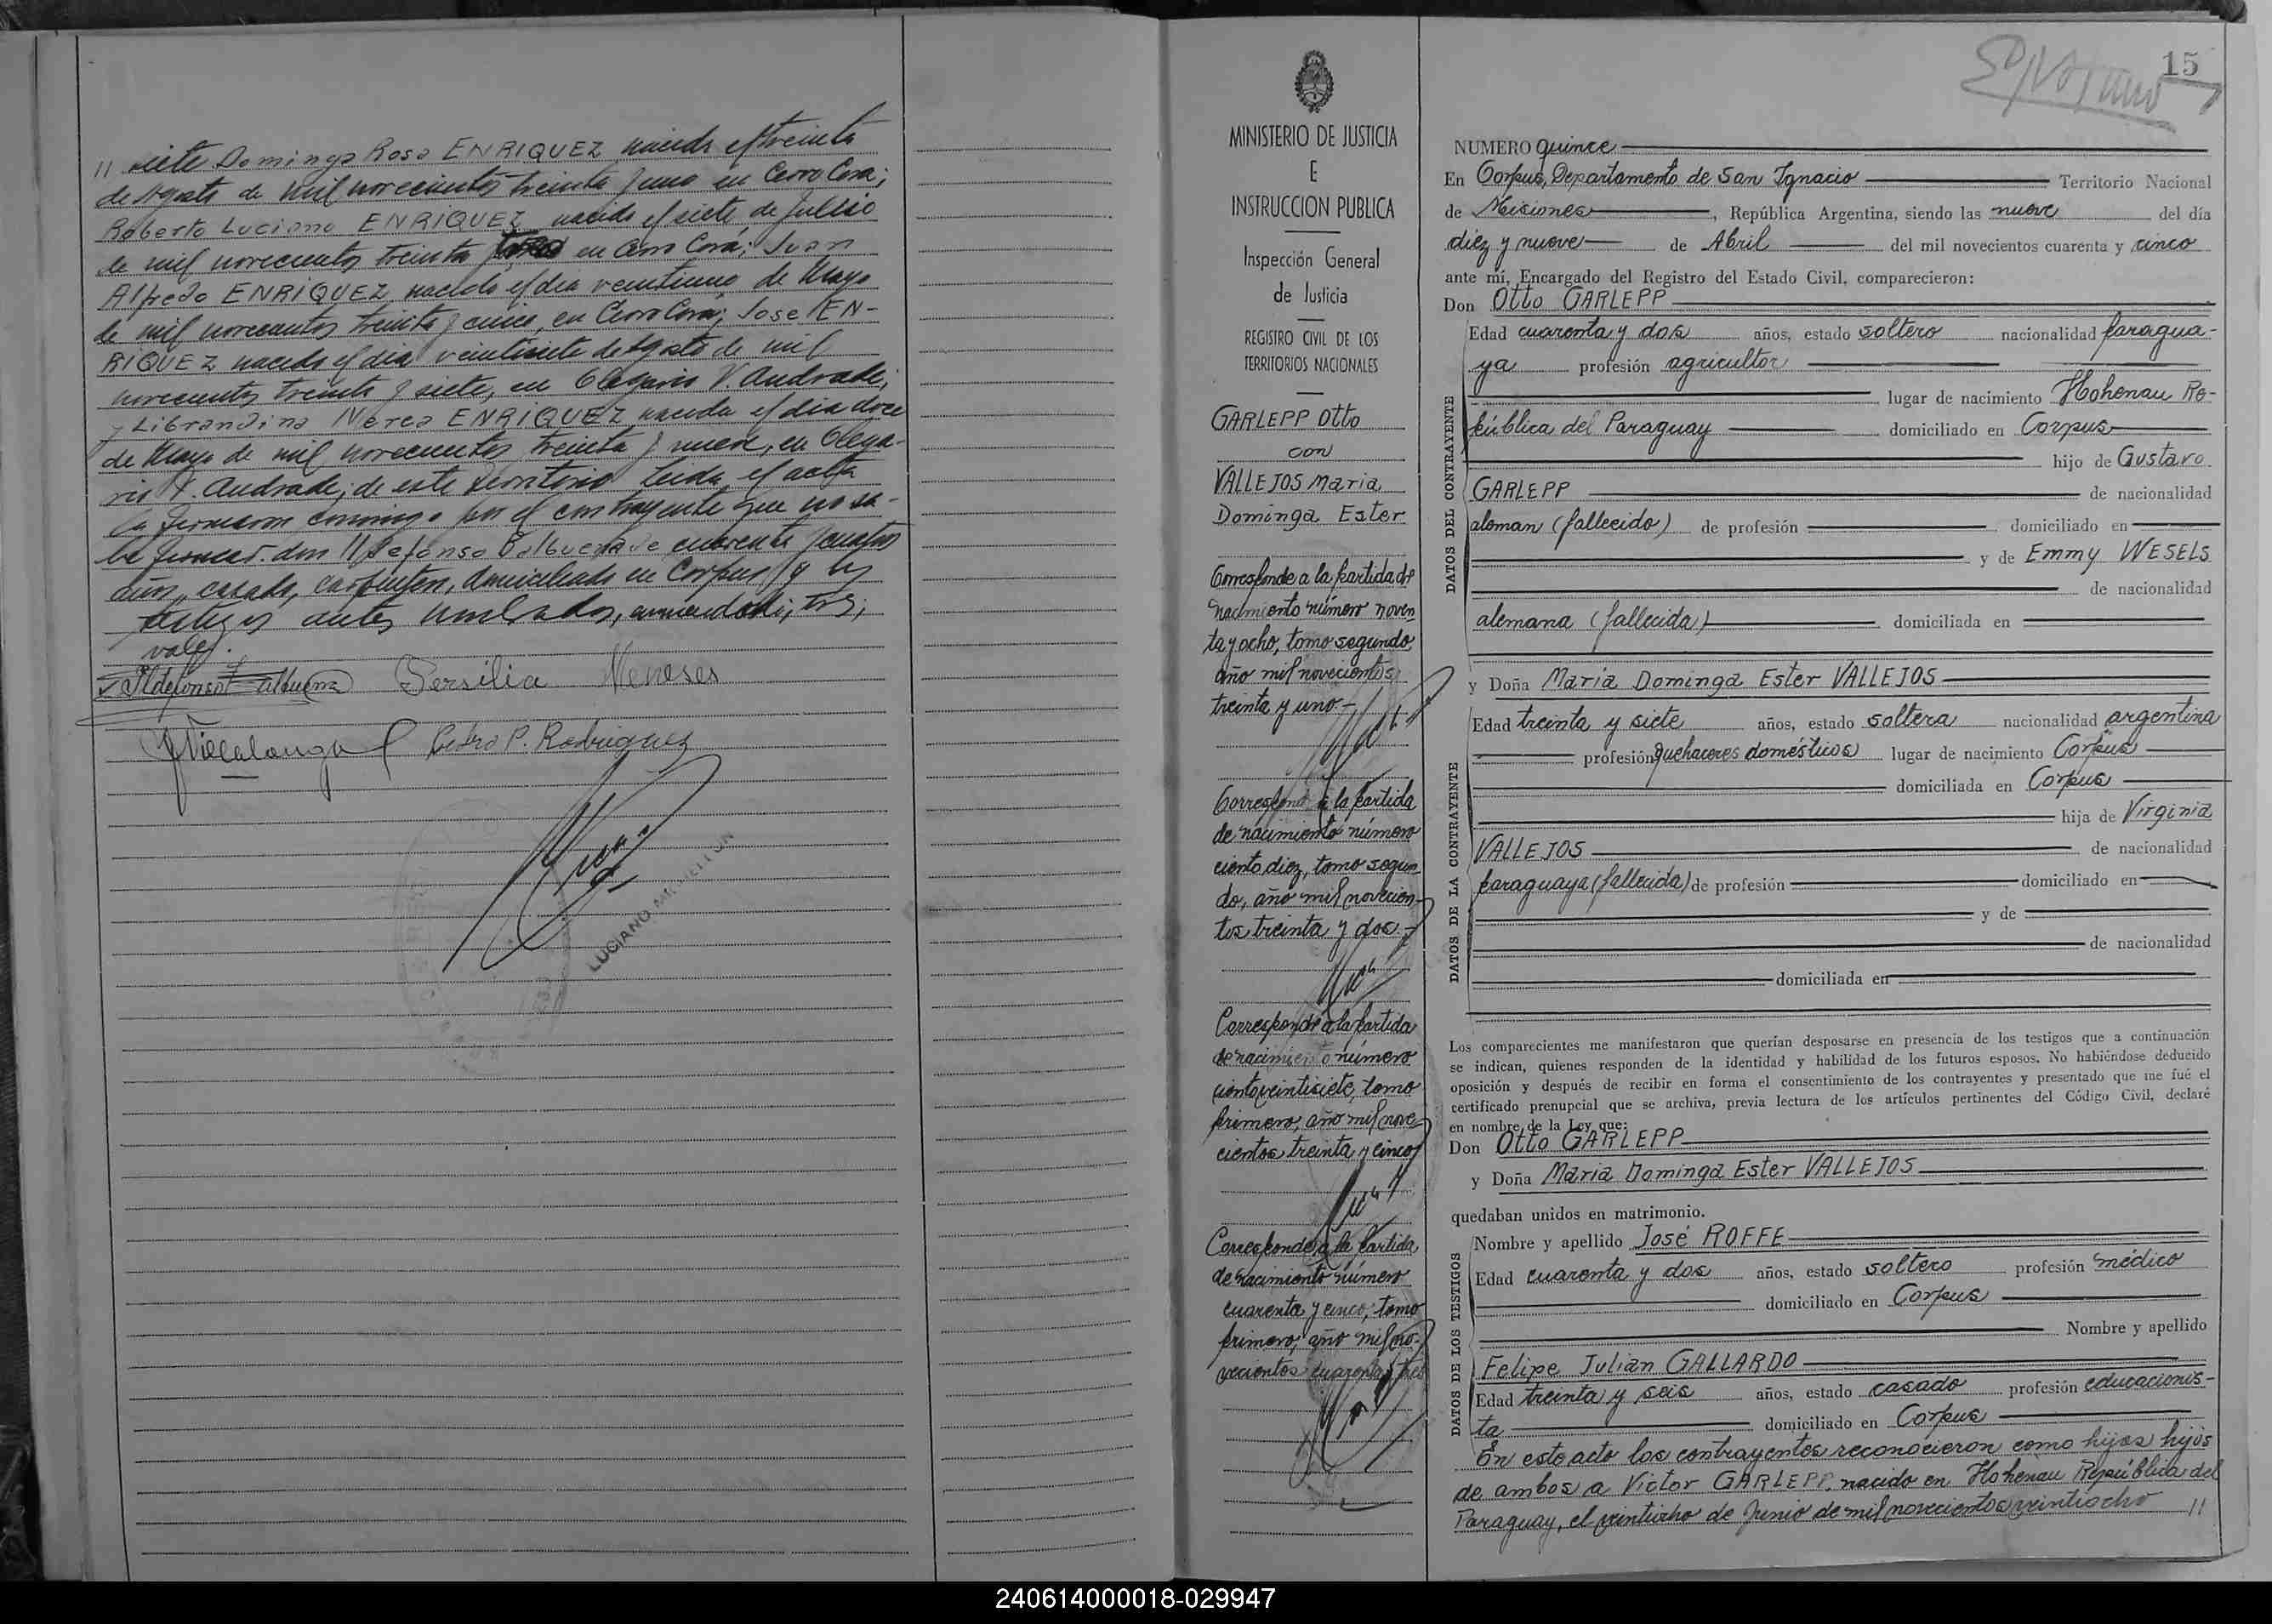 // siete Dominga Rosa ENRIQUEZ nacida el treinta
de Agosto de mil novecientos treinta y uno en Cerro Cora;
Roberto Luciano ENRIQUEZ nacido el siete de Julio
de mil novecientos treinta y tres en Cerro Corá; Juan
Alfredo ENRIQUEZ nacido el dia veintiuno de Mayo
de mil novecientos treinta y cinco, en Cerro Corá; Jose EN-
RIQUEZ nacido el dia veintisiete de Agosto de mil
novecientos treinta y siete, en Olegario V. Andrade;
y Librandina Nerea ENRIQUEZ nacida el dia doce
de Mayo de mil novecientos treinta y nueve, en Olega-
rio V. Andrade; de este territorio leida el acta
la firmaron conmigo por el contrayente que no sa-
be firmar don Ildefonso Balbuena de cuarenta y cuatro
años, casado, carpintero, domiciliado en Corpus y los
testigos antes nombrados, enmendado; tres;
vale.
Ildefonso Balbuena Persilia Meneses
Villalonga Pedro P. Rodriguez
LUCIANO
MINISTERIO DE JUSTICIA
E
INSTRUCCION PUBLICA
Inspección General
de Justicia
REGISTRO CIVIL DE LOS
TERRITORIOS NACIONALES
GARLEPP Otto
con
VALLEJOS Maria
Dominga Ester
Corresponde a la partida de
nacimiento número noven
ta y ocho, tomo segundo,
año mil novecientos
treinta y uno-
Corresponde a la partida
de nacimiento número
ciento diez, tomo segun
do, año mil novecien-
tos treinta y dos-
Corresponde a la partida
de nacimiento número
ciento veintisiete, tomo
primero, año mil nove-
cientos treinta y cinco
Corresponde a la partida
de nacimiento número
cuarenta y cinco, tomo
primero, año mil no-
vecientos cuarenta y tres
15
NUMERO quince
En Corpus, Departamento de San Ignacio Territorio Nacional
de Misiones, República Argentina, siendo las nueve del día
diez y nueve de Abril del mil novecientos cuarenta y cinco
ante mí, Encargado del Registro del Estado Civil, comparecieron:
Don Otto GARLEPP
DATOS DEL CONTRAYENTE
Edad cuarenta y dos años, estado soltero nacionalidad paragua-
ya profesión agricultor
lugar de nacimiento Hohenau Re-
pública del Paraguay domiciliado en Corpus
hijo de Gustavo
GARLEPP de nacionalidad
aleman (fallecido) de profesión domiciliado en
y de Emmy WESELS
de nacionalidad
alemana (fallecida) domiciliada en
y Doña María Dominga Ester VALLEJOS
DATOS DE LA CONTRAYENTE
Edad treinta y siete años, estado soltera nacionalidad argentina
profesión quehaceres domésticos lugar de nacimiento Corpus
domiciliada en Corpus
hija de Virginia
VALLEJOS de nacionalidad
paraguaya (fallecida) de profesión domiciliado en
y de
de nacionalidad
domiciliada en
Los comparecientes me manifestaron que querían desposarse en presencia de los testigos que a continuación
se indican, quienes responden de la identidad y habilidad de los futuros esposos. No habiéndose deducido
oposición y después de recibir en forma el consentimiento de los contrayentes y presentado que me fué el
certificado prenupcial que se archiva, previa lectura de los artículos pertinentes del Código Civil, declaré
en nombre de la Ley que:
Don Otto GARLEPP
y Doña María Dominga Ester VALLEJOS
quedaban unidos en matrimonio.
DATOS DE LOS TESTIGOS
Nombre y apellido José ROFFE
Edad cuarenta y dos años, estado soltero profesión médico
domiciliado en Corpus
Nombre y apellido
Felipe Julian GALLARDO
Edad treinta y seis años, estado casado profesión educacionis-
ta domiciliado en Corpus
En este acto los contrayentes reconocieron como hijos hijos
de ambos a Victor GARLEPP, nacido en Hohenau República del
Paraguay, el veintiocho de Junio de mil novecientos veintiocho //
240614000018-029947